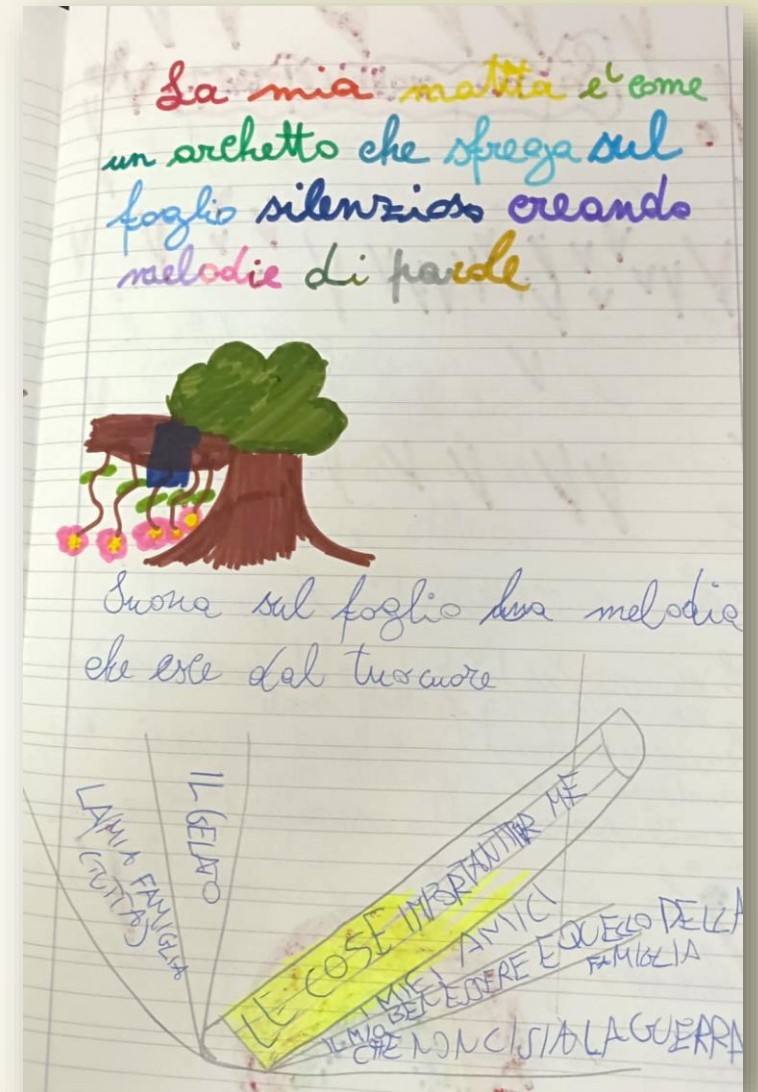 La mia matita e' come
un archetto che sfrega sul
foglio silenzioso creando
melodie di parole
Suona sul foglio una melodia
che esce dal tuo cuore
LA MIA FAMIGLIA
(TUTTA)
IL GELATO
LE COSE IMPORTANTI PER ME
I MIEI AMICI
IL MIO BENESSERE E QUELLO DELLA
FAMIGLIA
CHE NON CI SIA LA GUERRA